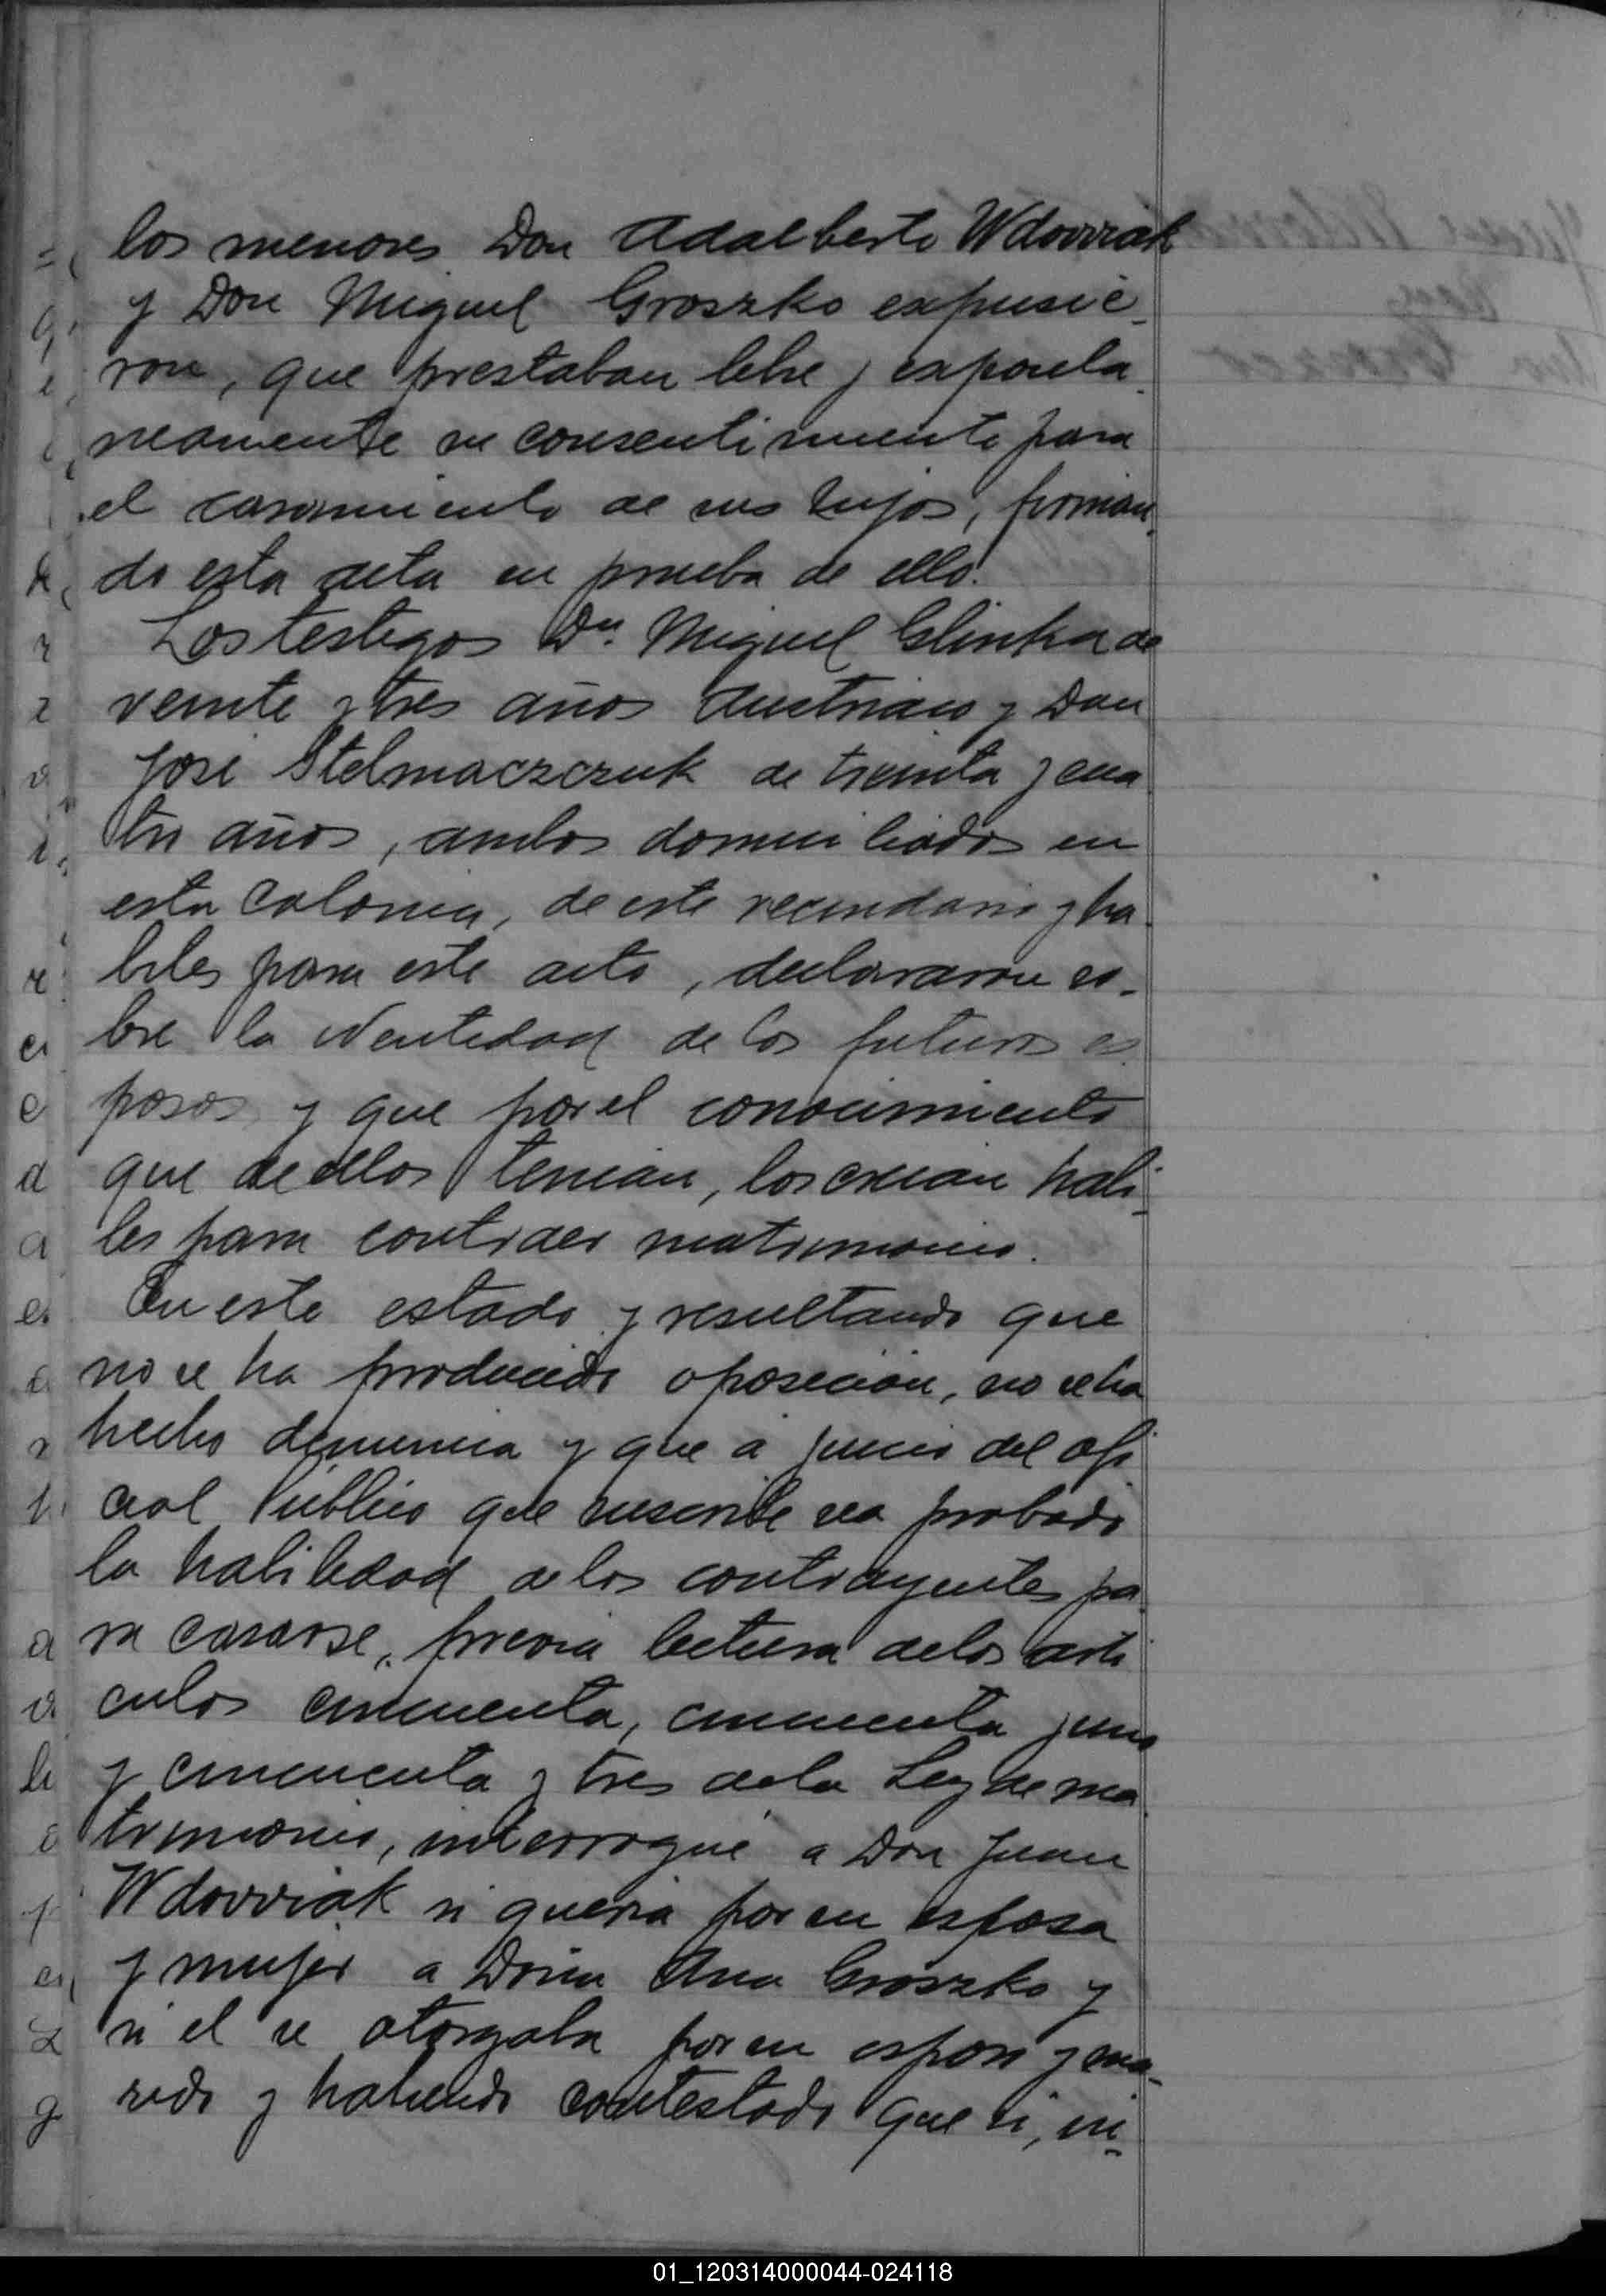 los menores Don Adalberto Wdowiak
y Don Miguel Groszko expusie-
ron, que prestaban libre y exponta-
neamente su consentimiento para
el casamiento de sus hijos, firman-
do esta acta en prueba de ello.
Los testigos Dn. Miguel Glinka de
veinte y tres años Austriaco y Don
José Stelmaczczuk de treinta y cua
tro años, ambos domiciliados en
esta Colonia, de este vecindario y ha-
biles para este acto, declararon so-
bre la identidad de los futuros es
posos y que por el conocimiento
que de ellos tenian, los creian habi-
les para contraer matrimonio.
En este estado y resultando que
no se ha producido oposicion, no se ha
hecho denuncia y que á juicio del ofi
cial Público que suscribe sea probado
la habilidad de los contrayentes pa
ra casarse, previa lectura de los arti
culos cincuenta, cincuenta y uno
y cincuenta y tres de la Ley de ma
trimonio, interrogué a Don Juan
Wdowiak si queria por su esposa
y mujer a Doña Ana Groszko y
si el se otorgaba por su esposo y ma-
rido y habiendo contestado que si, in-
01_120314000044-024118